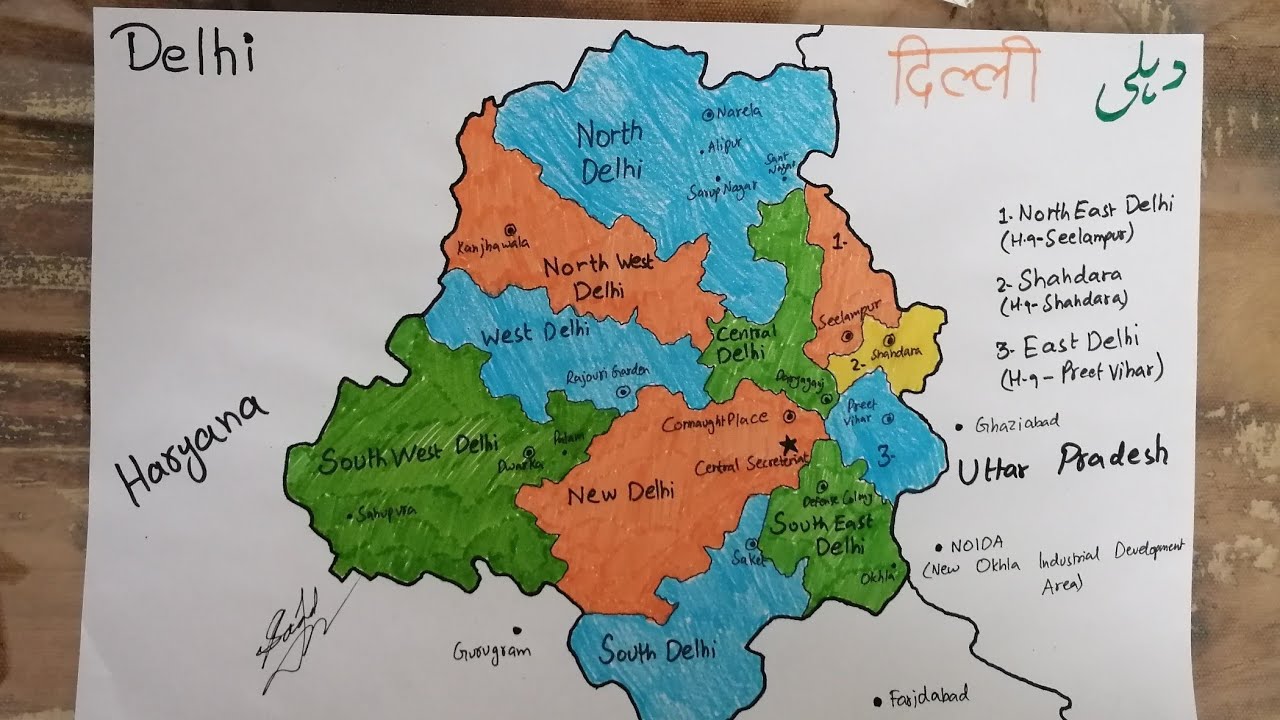 Delhi
दिल्ली
دہلی
North
Delhi
Narela
Alipur
Sarup Nagar
Sant
Nagar
Kanjhawala
North West
Delhi
1-
1- North East Delhi
(H.q-Seelampur)
2- Shahdara
(H.q-Shahdara)
3- East Delhi
(H-q-Preet Vihar)
West Delhi
Rajouri Garden
Central
Delhi
Daryaganj
Seelampur
2-
Shahdara
Preet
Vihar
3-
Haryana
South West Delhi
Dwarka
Palam
Sahupura
Connaught Place
Central Secreteriat
New Delhi
Ghaziabad
Uttar Pradesh
Defense Colony
South East
Delhi
Okhla
NOIDA
(New Okhla Industrial Development
Area)
Saket
South Delhi
Gurugram
Faridabad